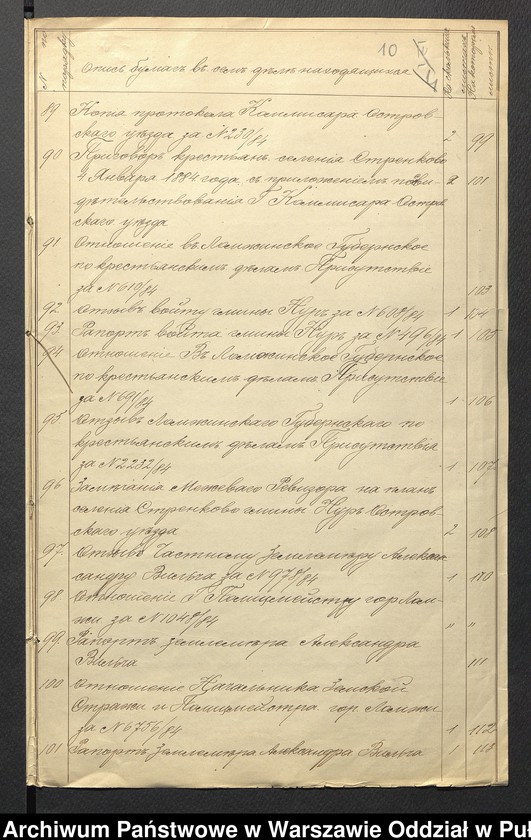 10
XVI
№ по порядку
Опись бумагъ въ семъ дѣлѣ находящихся
На сколькихъ листахъ
На которомъ листѣ
89 Копія протокола Коммисара Остров-
скаго уѣзда за №230/84 2 99
90 Приговоръ крестьянъ селенія Стренково
4 Января 1884 года, съ приложеніемъ 2 101
дѣтельствованія Г Коммисара Остров
скаго уѣзда
91 Отношеніе въ Ломжинское Губернское
по крестьянскимъ дѣламъ Присутствіе
за №610/84 103
92 Отзывъ войту гмины Нуръ за №608/84 1 104
93 Рапортъ войта гмины Нуръ за №496/84 1 105
94 Отношеніе Въ Ломжинское Губернское
по крестьянскимъ дѣламъ Присутствіе
за №691/84 1 106
95 Отзывъ Ломжинскаго Губернскаго по
крестьянскимъ дѣламъ Присутствія
за №2232/84 1 107
96 Замѣчанія Межеваго Ревизора на планъ
селенія Стренково гмины Нуръ Остров-
скаго уѣзда 2 108
97 Отзывъ Частному Землемѣру Алекса
сандру Вильга за №978/84 1 110
98 Отношеніе Г Полицмейстру гор Лом-
жи за №1048/84 " "
99 Рапортъ землемѣра Александра
Вильга 111
100 Отношеніе Начальника Земской
Стражи и Полицмейстра гор. Ломжи
за №6756/84 1 112
101 Рапортъ Землемѣра Александра Вильга 1 113
Archiwum Państwowe w Warszawie Oddział w Puł